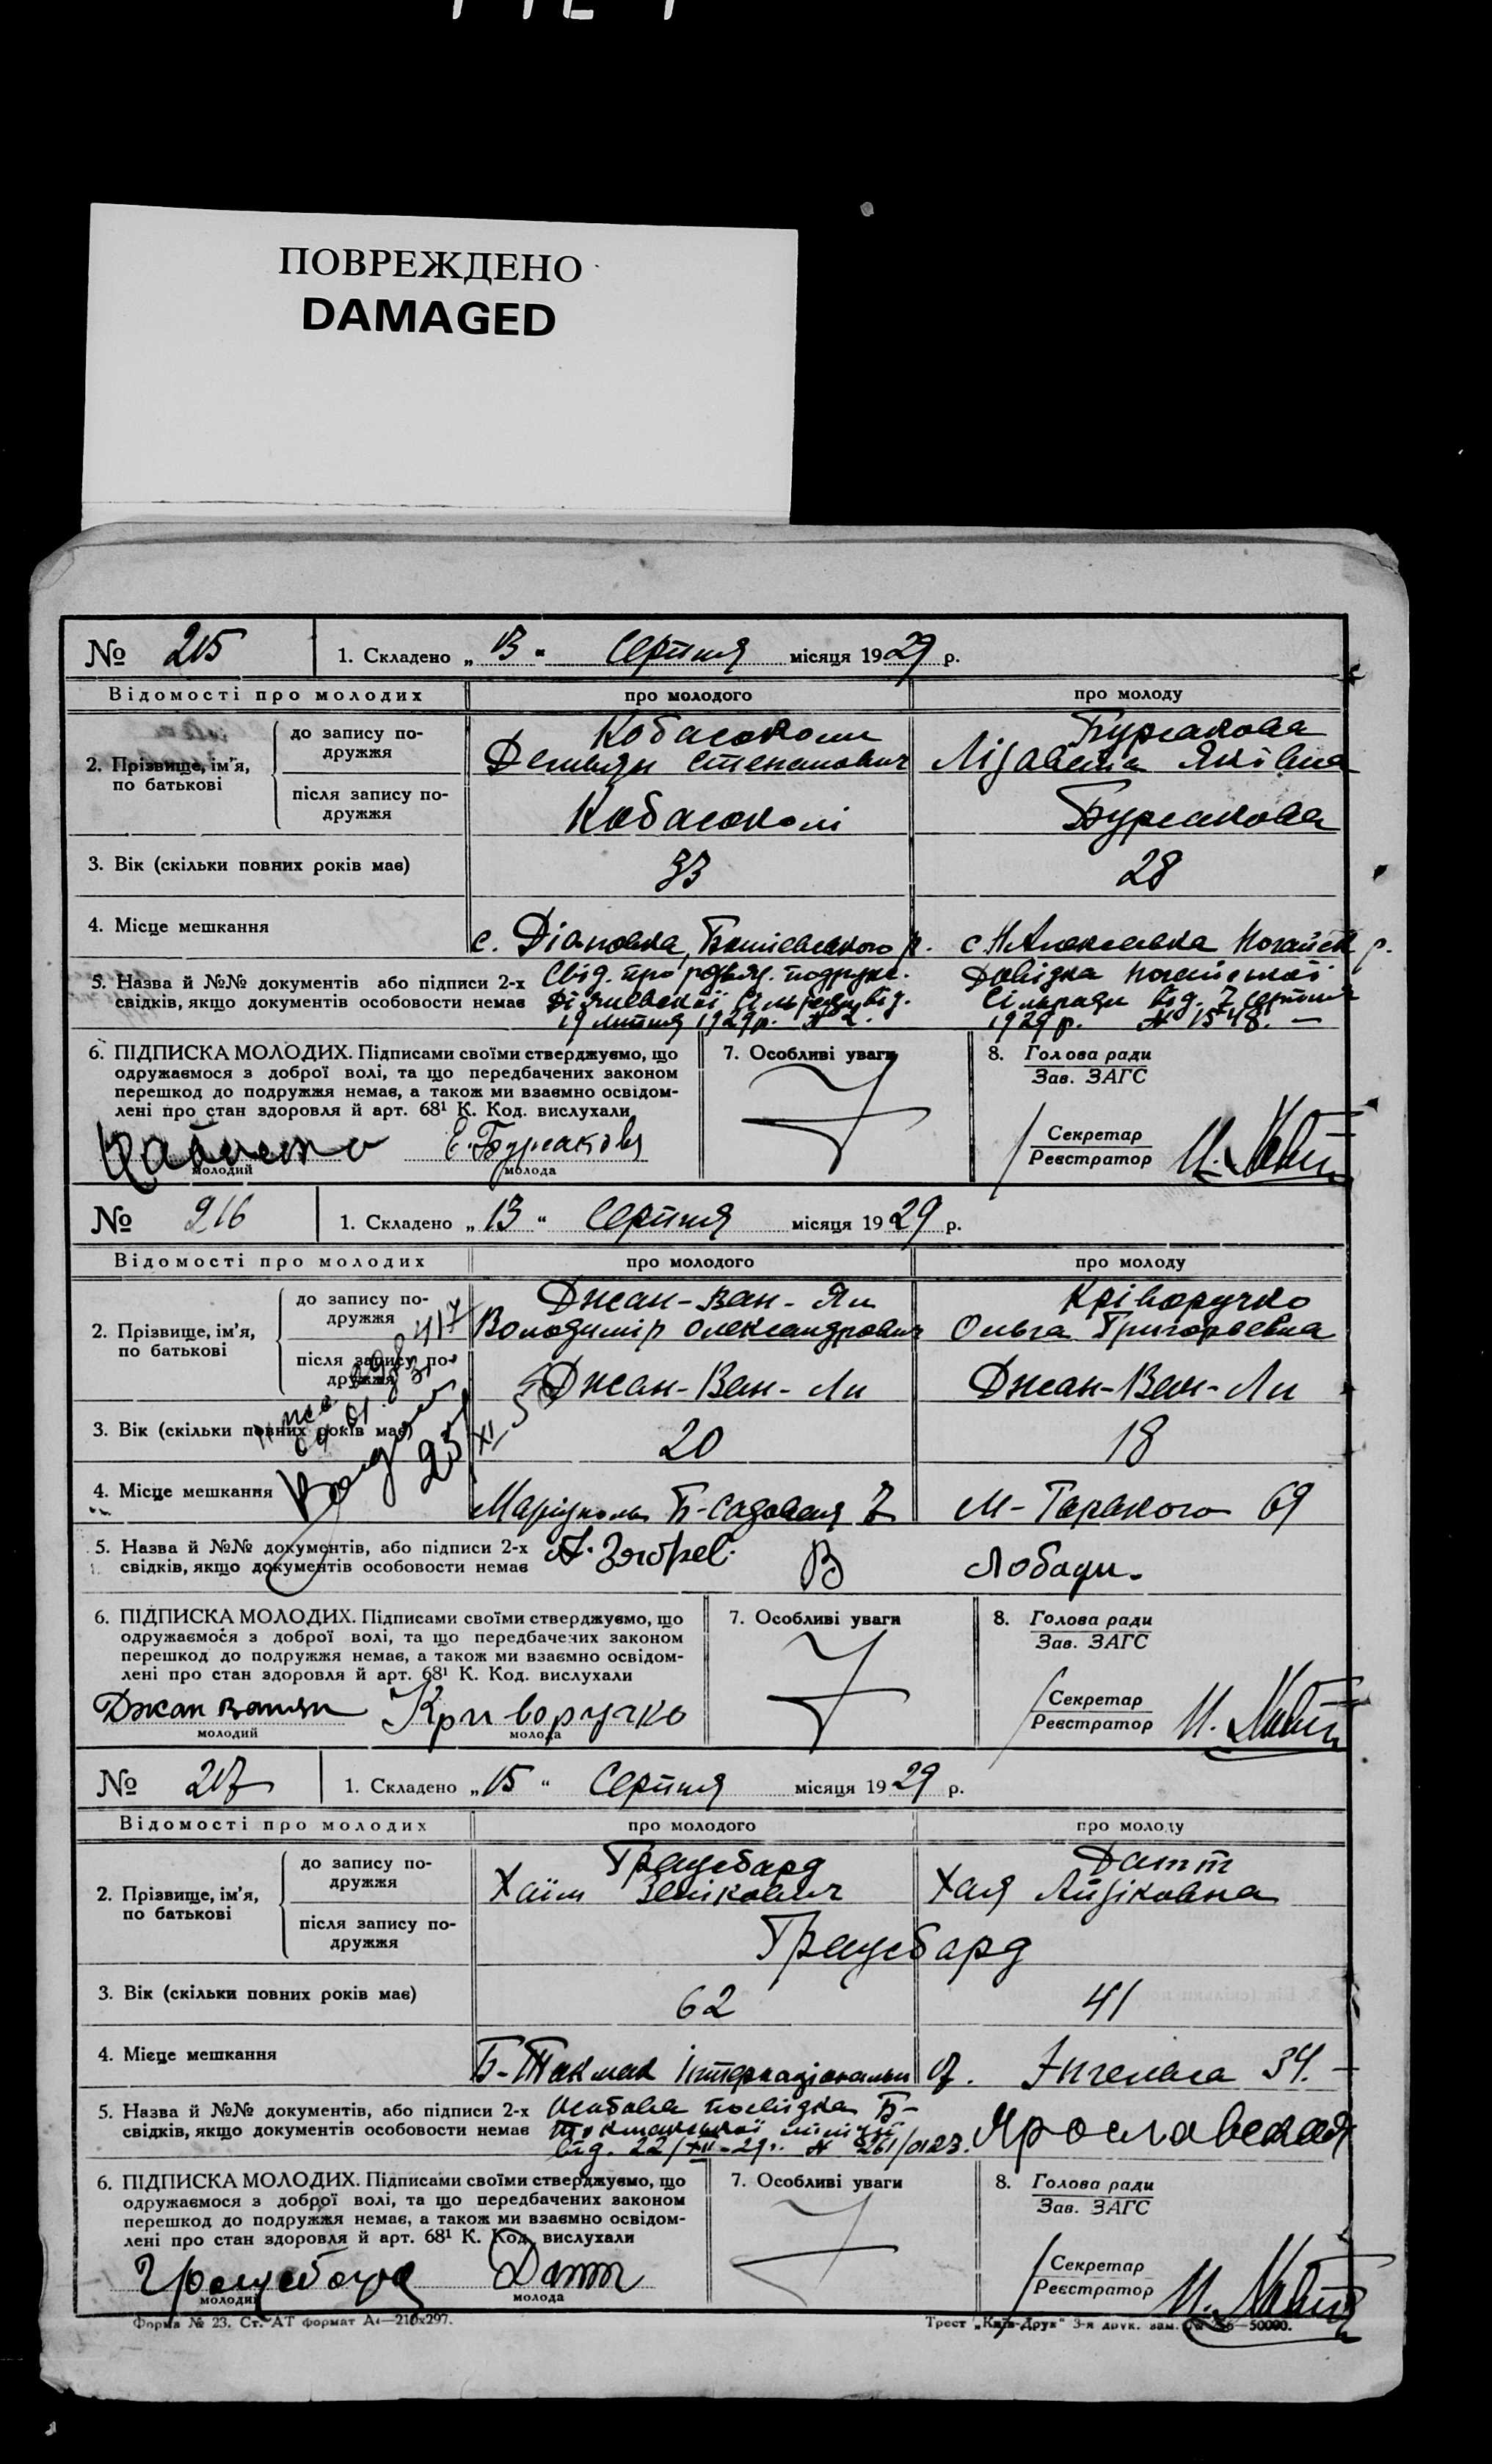 ПОВРЕЖДЕНО
DAMAGED
№ 215 1. Складено „ 13 " Серпня місяця 1929 р.
Відомості про молодих про молодого про молоду
2. Прізвище, ім'я, по батькові
до запису подружжя
Кобасоколи Бурлакова
Демьян Степанович Лізавета Яківна
після запису подружжя
Кобасоколі Бурлакова
3. Вік (скільки повних років має) 33 28
4. Місце мешкання
5. Назва й №№ документів або підписи 2-х
свідків, якщо документів особовости немає
Свід. про розвяз. подружж. Довідка Ногайської
Сільради від. Сільради від. 7 серпня
19 липня 1929 р. № 2. 1929 р. № 1548. —
6. ПІДПИСКА МОЛОДИХ. Підписами своїми стверджуємо, що
одружаємося з доброї волі, та що передбачених законом
перешкод до подружжя немає, а також ми взаємно освідом-
лені про стан здоровля й арт. 68¹ К. Код. вислухали
Е. Бурлакова
молодий молода
7. Особливі уваги
8. Голова ради
Зав. ЗАГС
Секретар
Реєстратор
№ 216 1. Складено „ 13 " Серпня місяця 1929 р.
Відомості про молодих про молодого про молоду
2. Прізвище, ім'я, по батькові
до запису подружжя
Джан-Ван-Ли Кріворучко
Володимір Олександрович Ольга Григорьевна
після запису подружжя
Джан-Ван-Ли Джан-Ван-Ли
3. Вік (скільки повних років має) 20 18
4. Місце мешкання
Маріуполь Б-Садовая 7 М-Горького 69
5. Назва й №№ документів, або підписи 2-х
свідків, якщо документів особовости немає
Лобади.
6. ПІДПИСКА МОЛОДИХ. Підписами своїми стверджуємо, що
одружаємося з доброї волі, та що передбачених законом
перешкод до подружжя немає, а також ми взаємно освідом-
лені про стан здоровля й арт. 68¹ К. Код. вислухали
Джан Ванли Криворучко
молодий молода
7. Особливі уваги
8. Голова ради
Зав. ЗАГС
Секретар
Реєстратор
№ 217 1. Складено „ 15 " Серпня місяця 1929 р.
Відомості про молодих про молодого про молоду
2. Прізвище, ім'я, по батькові
до запису подружжя
Граусбард Датт
Хаїм Зелікович Хая Айзіковна
після запису подружжя
Граусбард
3. Вік (скільки повних років має) 62 41
4. Місце мешкання
Б-Токмак Інтернаціональн 17. Енгельса 34. —
5. Назва й №№ документів, або підписи 2-х
свідків, якщо документів особовости немає
Особова посвідка Б-
Токмакської міліції
від. 22/VII-29 р. № 261/0123. Ярославская
6. ПІДПИСКА МОЛОДИХ. Підписами своїми стверджуємо, що
одружаємося з доброї волі, та що передбачених законом
перешкод до подружжя немає, а також ми взаємно освідом-
лені про стан здоровля й арт. 68¹ К. Код. вислухали
Граусбард Датт
молодий молода
7. Особливі уваги
8. Голова ради
Зав. ЗАГС
Секретар
Реєстратор
Форма № 23. Ст. АТ формат А4—210x297.
Трест „Київ-Друк" 3-я друк. зам. 50000.